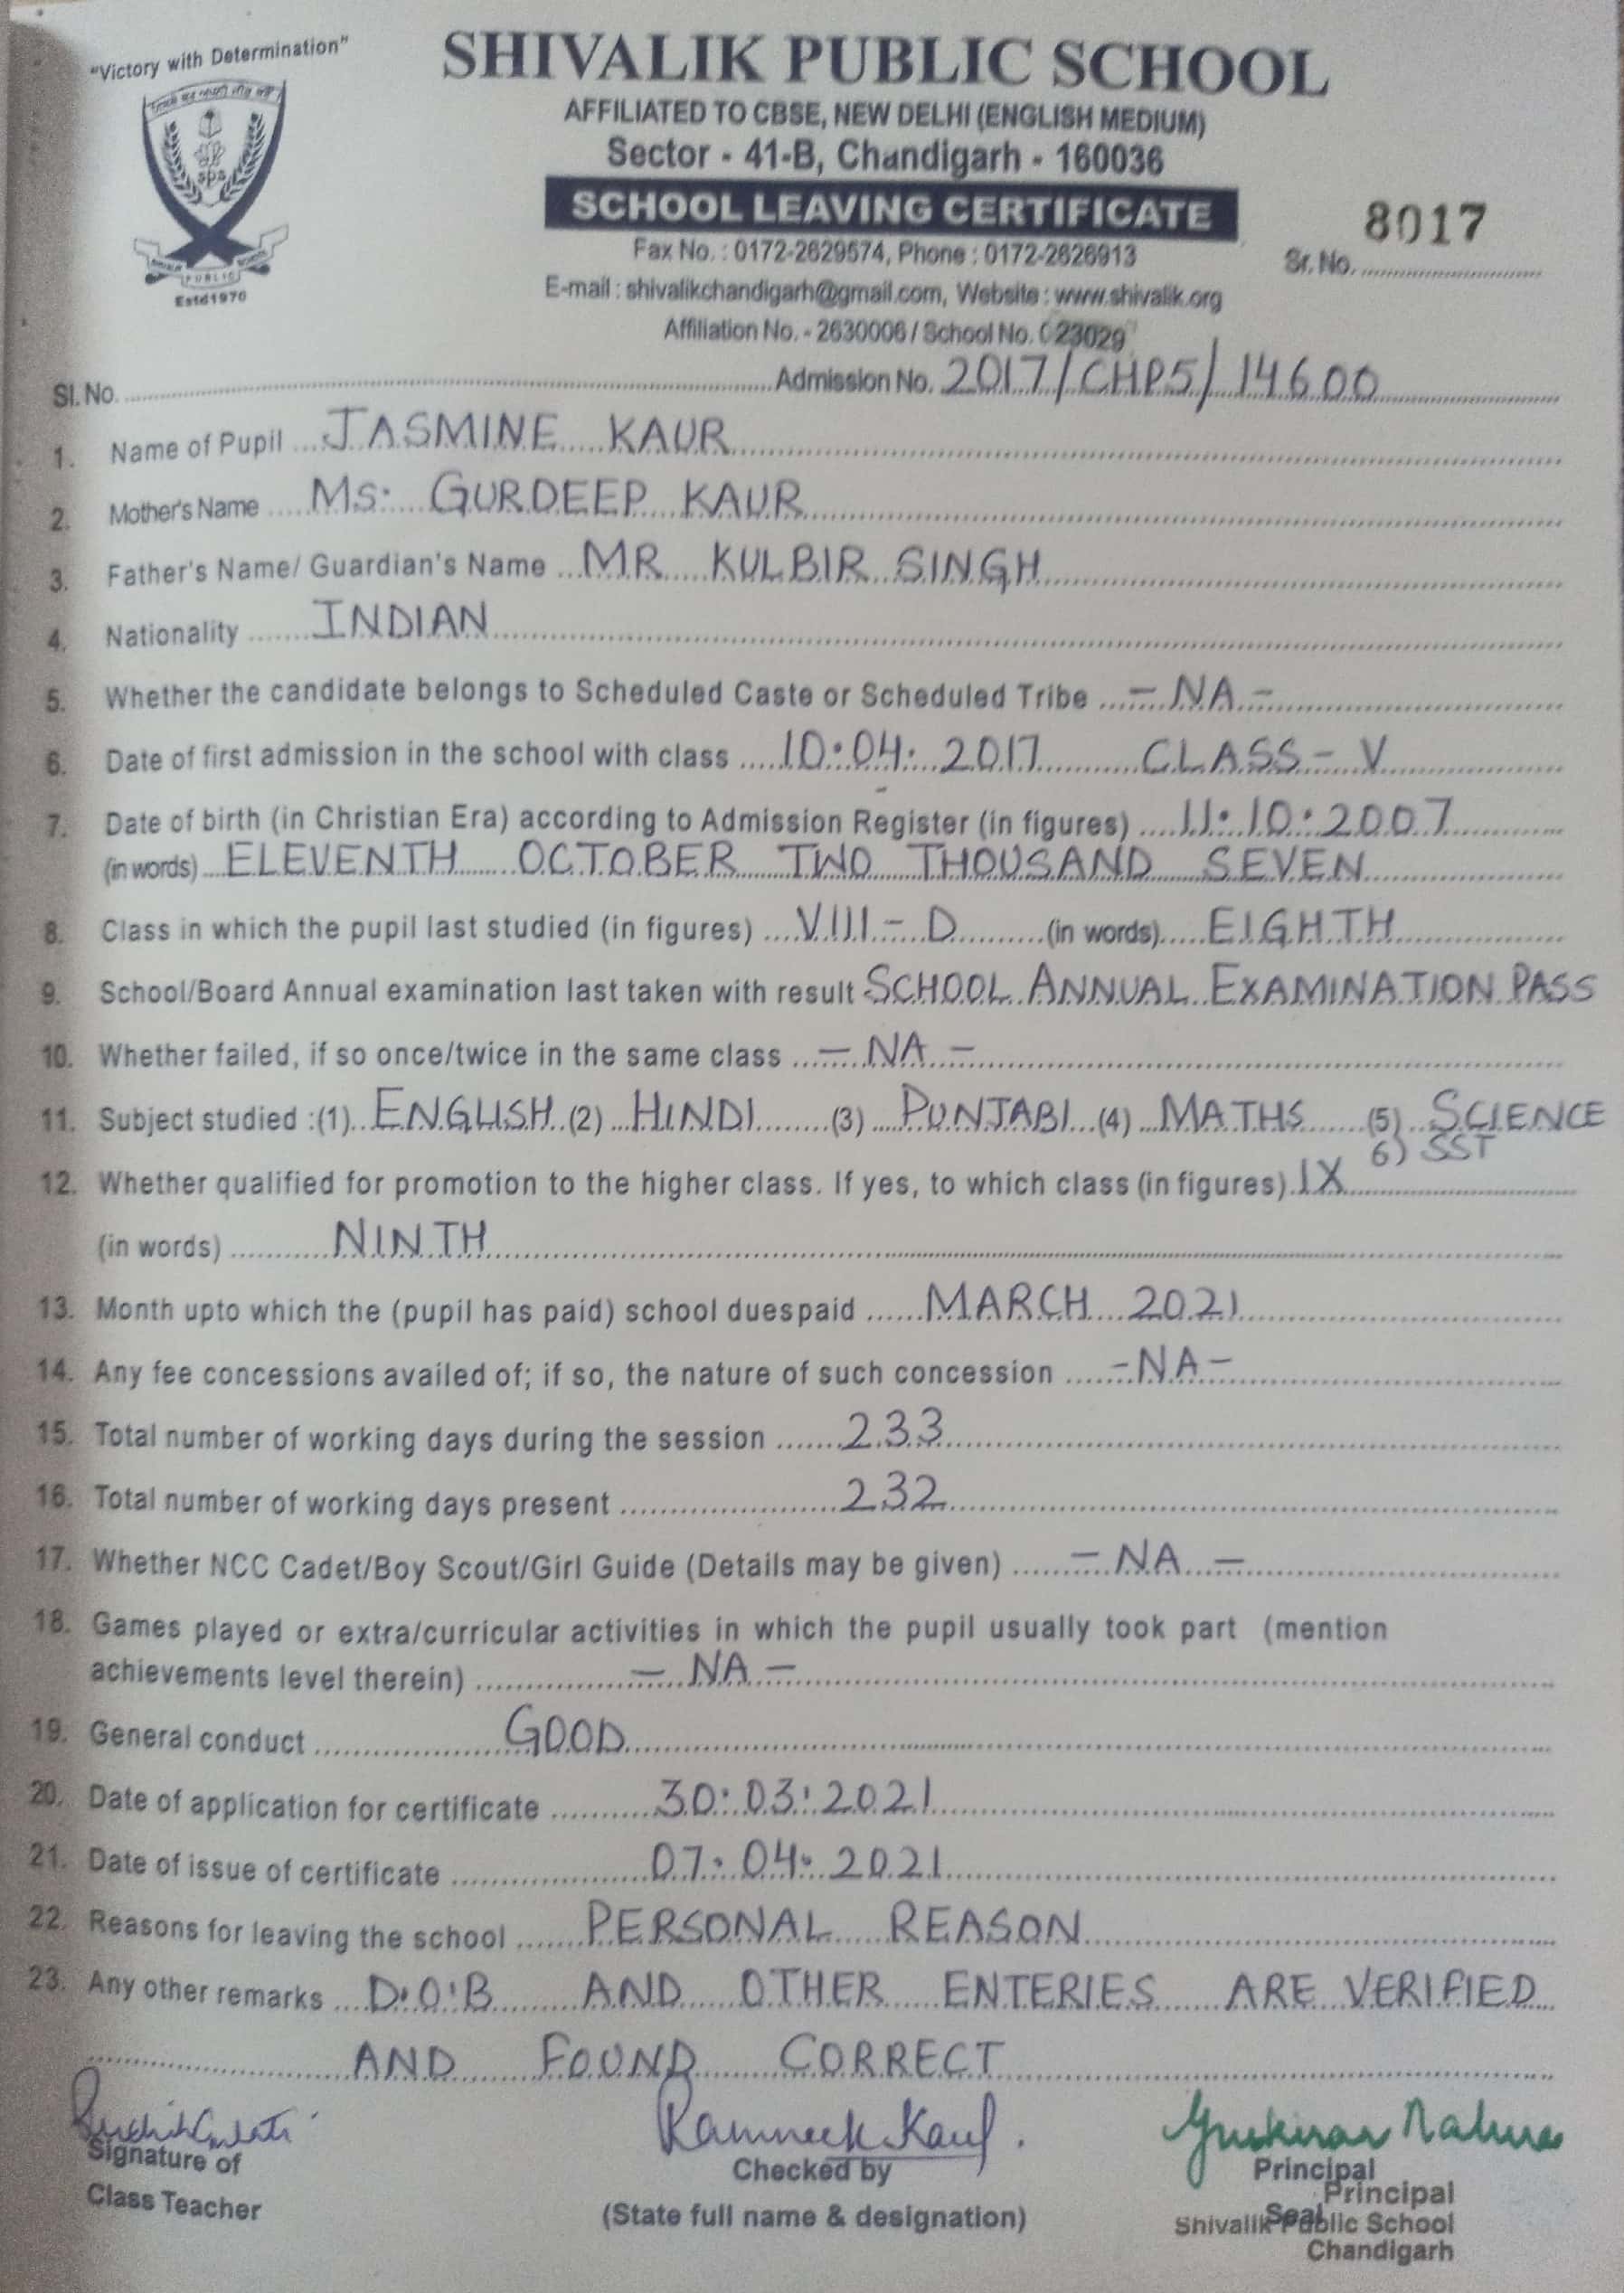 "Victory with Determination"
SHIVALIK PUBLIC SCHOOL
AFFILIATED TO CBSE, NEW DELHI (ENGLISH MEDIUM)
Sector - 41-B, Chandigarh - 160036
SCHOOL LEAVING CERTIFICATE
8017
Fax No. : 0172-2629574, Phone : 0172-2626913
Sr. No.
E-mail : shivalikchandigarh@gmail.com, Website : www.shivalik.org
sps
SHIVALIK PUBLIC SCHOOL
Estd1970
Affiliation No. - 2630006 / School No. 023029
Sl. No. Admission No. 2017/CHPS/14600
1. Name of Pupil JASMINE KAUR
2. Mother's Name Ms. GURDEEP KAUR
3. Father's Name/ Guardian's Name MR KULBIR SINGH
4. Nationality INDIAN
5. Whether the candidate belongs to Scheduled Caste or Scheduled Tribe - NA -
6. Date of first admission in the school with class 10.04.2017 CLASS - V
7. Date of birth (in Christian Era) according to Admission Register (in figures) 11.10.2007
(in words) ELEVENTH OCTOBER TWO THOUSAND SEVEN
8. Class in which the pupil last studied (in figures) VIII - D (in words) EIGHTH
9. School/Board Annual examination last taken with result SCHOOL ANNUAL EXAMINATION PASS
10. Whether failed, if so once/twice in the same class - NA -
11. Subject studied :(1) ENGLISH (2) HINDI (3) PUNJABI (4) MATHS (5) SCIENCE
6) SST
12. Whether qualified for promotion to the higher class. If yes, to which class (in figures) IX
(in words) NINTH
13. Month upto which the (pupil has paid) school duespaid MARCH 2021
14. Any fee concessions availed of; if so, the nature of such concession - NA -
15. Total number of working days during the session 233
16. Total number of working days present 232
17. Whether NCC Cadet/Boy Scout/Girl Guide (Details may be given) - NA -
18. Games played or extra/curricular activities in which the pupil usually took part (mention
achievements level therein) - NA -
19. General conduct GOOD
20. Date of application for certificate 30.03.2021
21. Date of issue of certificate 07.04.2021
22. Reasons for leaving the school PERSONAL REASON
23. Any other remarks D.O.B AND OTHER ENTERIES ARE VERIFIED
AND FOUND CORRECT
Ramneek Kaur.
Signature of
Class Teacher
Checked by
(State full name & designation)
Principal
Seal
Principal
Shivalik Public School
Chandigarh